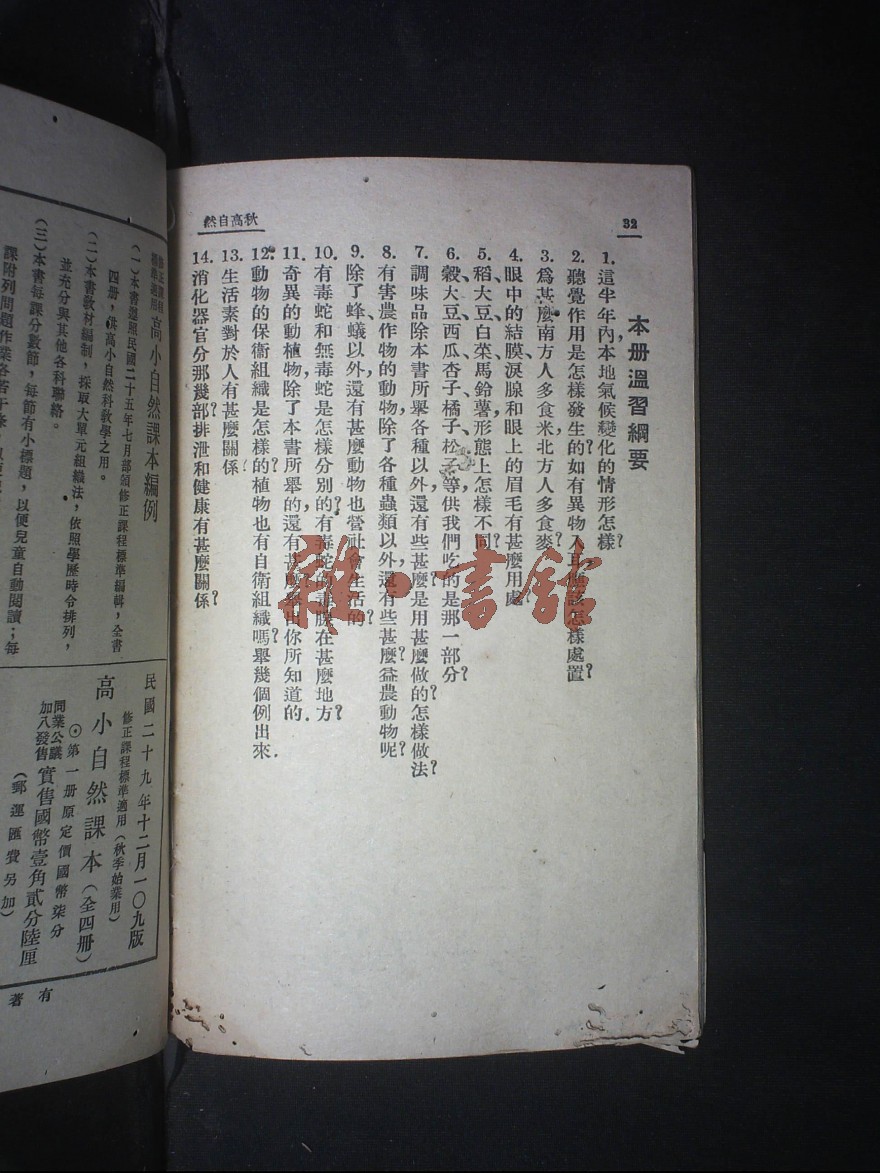 32
秋高自然
本册溫習綱要
1. 這半年內,本地氣候變化的情形怎樣?
2. 聽覺作用是怎樣發生的?如有異物入耳,應該怎樣處置?
3. 爲甚麼南方人多食米,北方人多食麥?
4. 眼中的結膜、淚腺和眼上的眉毛有甚麼用處?
5. 稻、大豆、白菜、馬鈴薯形態上怎樣不同?
6. 穀、大豆、西瓜、杏子、橘子、松子等供我們吃的是那一部分?
7. 調味品除本書所舉各種以外,還有些甚麼?是用甚麼做的?怎樣做法?
8. 有害農作物的動物,除了各種蟲類以外,還有些甚麼?益農動物呢?
9. 除了蜂、蟻以外,還有甚麼動物也營社會生活的?
10. 有毒蛇和無毒蛇是怎樣分別的?有毒蛇的毒腺在甚麼地方?
11. 奇異的動植物,除了本書所舉的,還有甚麼?舉出你所知道的.
12. 動物的保衞組織是怎樣的?植物也有自衛組織嗎?舉幾個例出來.
13. 生活素對於人有甚麼關係?
14. 消化器官分那幾部?排泄和健康有甚麼關係?
雜·書館
修正課程標準適用 高小自然課本編例
(一)本書遵照民國二十五年七月部頒修正課程標準編輯,全書
四册,供高小自然科敎學之用。
(二)本書敎材編制,採取大單元組織法,依照學歷時令排列,
並充分與其他各科聯絡。
(三)本書每課分數節,每節有小標題,以便兒童自動閱讀;每
課附列問題作業各若干條
民國二十九年十二月一〇九版
修正課程標準適用(秋季始業用)
高小自然課本(全四册)
⊙第一册原定價國幣柒分
同業公議
加八發售 實售國幣壹角貳分陸厘
(郵運匯費另加)
有
著